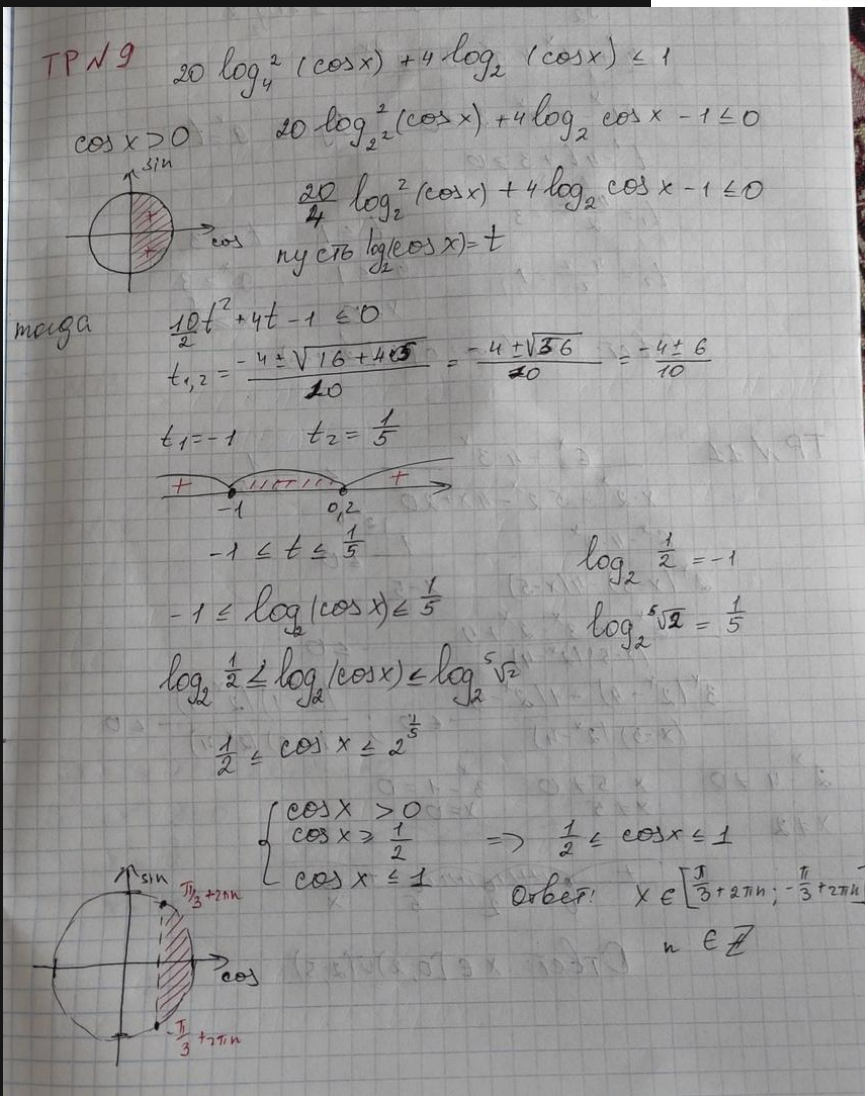 ТР№9 20 log₄² (cosx) + 4 log₂ (cosx) ≤ 1
cosx>0 20 log²_{2²} (cosx) + 4 log₂ cosx - 1 ≤ 0
sin
cos
20/4 log₂² (cosx) + 4 log₂ cosx - 1 ≤ 0
пусть log₂(cosx) = t
тогда 10/2 t² + 4t - 1 ≤ 0
t₁,₂ = (-4 ± √(16 + 4·5))/10 = (-4 ± √36)/10 = (-4 ± 6)/10
t₁ = -1 t₂ = 1/5
+ +
-1 0,2
-1 ≤ t ≤ 1/5 log₂ 1/2 = -1
-1 ≤ log₂(cosx) ≤ 1/5 log₂ ⁵√2 = 1/5
log₂ 1/2 ≤ log₂(cosx) ≤ log₂ ⁵√2
1/2 ≤ cosx ≤ 2^{1/5}
cosx > 0
cosx ≥ 1/2 => 1/2 ≤ cosx ≤ 1
cosx ≤ 1
Ответ: x ∈ [π/3 + 2πn; -π/3 + 2πn]
n ∈ Z
sin
π/3 + 2πn
cos
-π/3 + 2πn